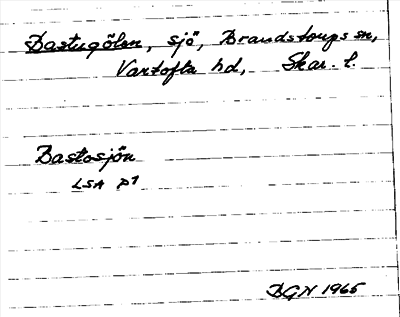 Bastugölen, sjö, Brandstorps sn,
Vartofta hd, Skar. l.
Bastosjön
LSA P1
BGN 1965